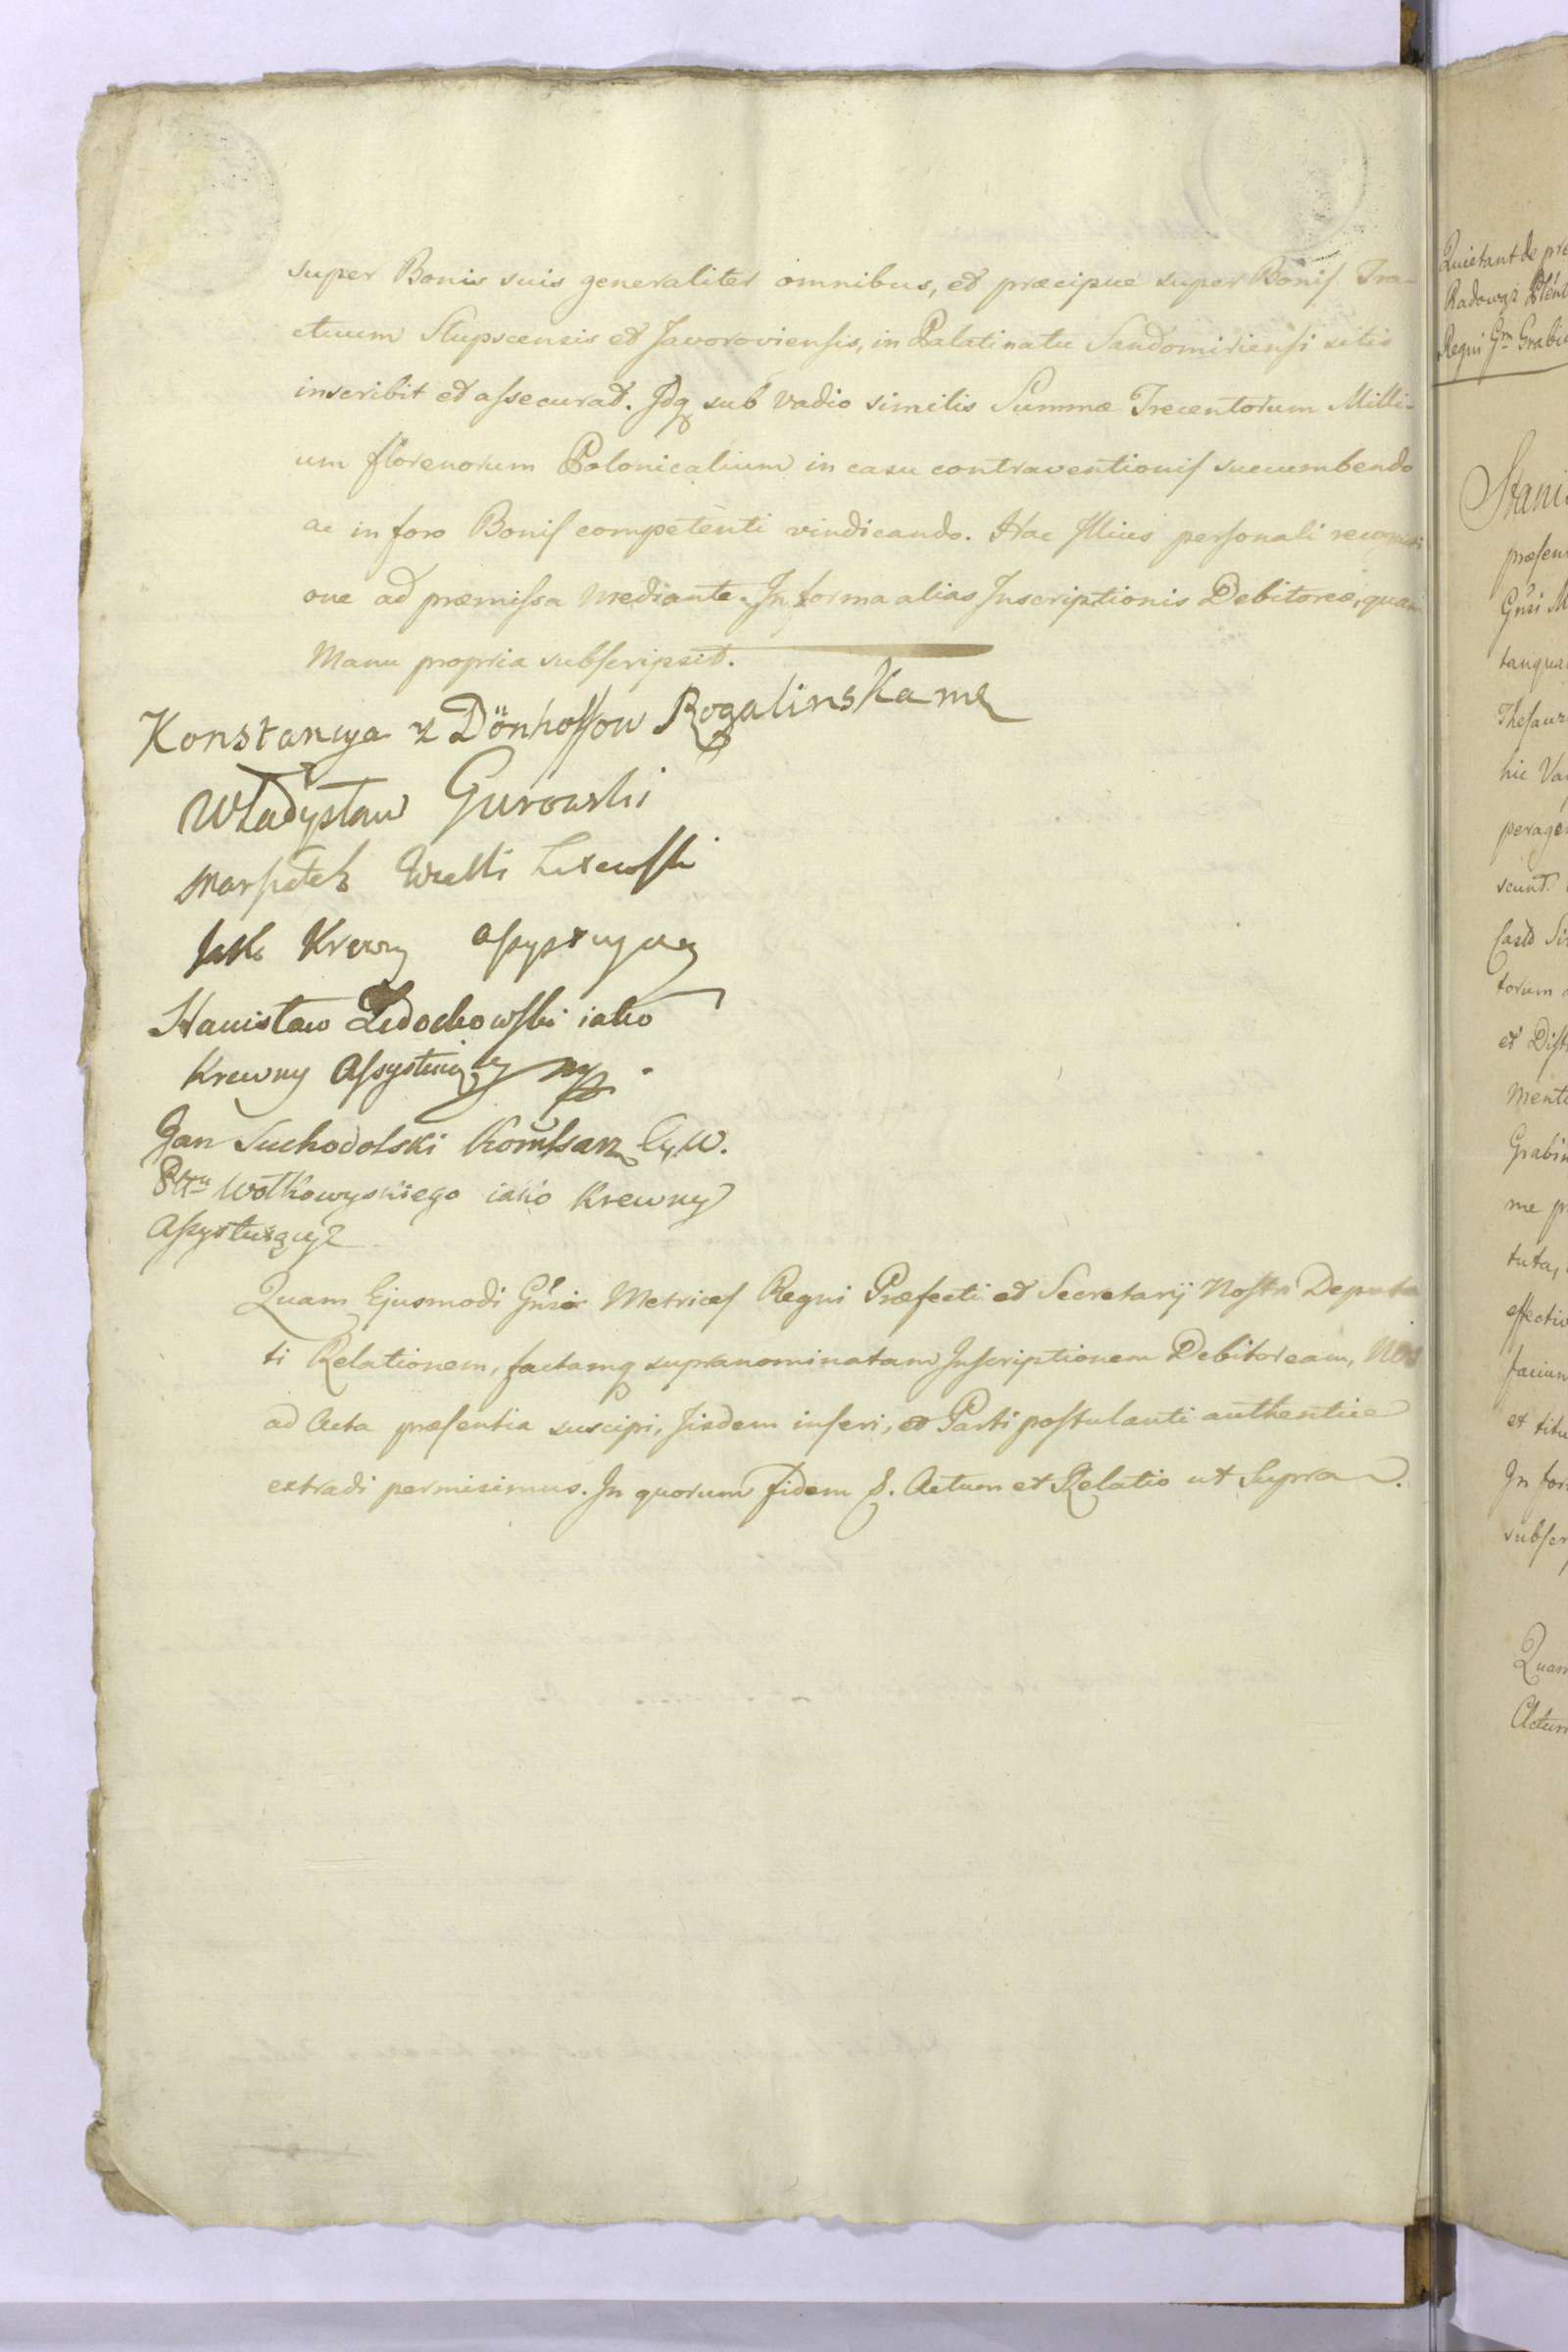 super Bonis suis generaliter omnibus, et præcipue super Bonis Tra-
ctuum Slupscensis et Javoroviensis, in Palatinatu Sandomiriensi sitis
inscribit et assecurat. Idq sub vadio similis Summæ Trecentorum Milli-
um florenorum Polonicalium in casu contraventionis succumbendo
ac in foro Bonis competenti vindicando. Hac Illius personali recogniti
one ad præmissa mediante. In forma alias Inscriptionis Debitoreæ, quam
Manu propria subscripsit.
Konstancya z Dönhoffow Rogalinska
Władysław Gurowski
Marszałek Wielki Litewski
Jako Krewny assystujący
Stanisław Ledochowski iako
Krewny Assystuiący
Jan Suchodolski Komisarz Cy. W.
Ptu Wołkowyskiego iako Krewny
Assystuiący
Quam Ejusmodi Gnsi Metrices Regni Præfecti et Secretarij Nostri Deputa
ti Relationem, factamq supranominatam Inscriptionem Debitoream, Nos
ad Acta præsentia suscipi, Iisdem inseri, et Parti postulanti authentice
extradi permisimus. In quorum fidem &. Actum et Relatio ut Supra.
Quietant de
Radowgi
Regni Grn
Stanis
præsen
Gnsi M
tanqua
Thesaur
hic Va
perage
scunt
Cast
torum
et Dist
Mente
Grabin
me
tuta,
effectiv
faciun
et titu
In for
subscr
Quam
Actum